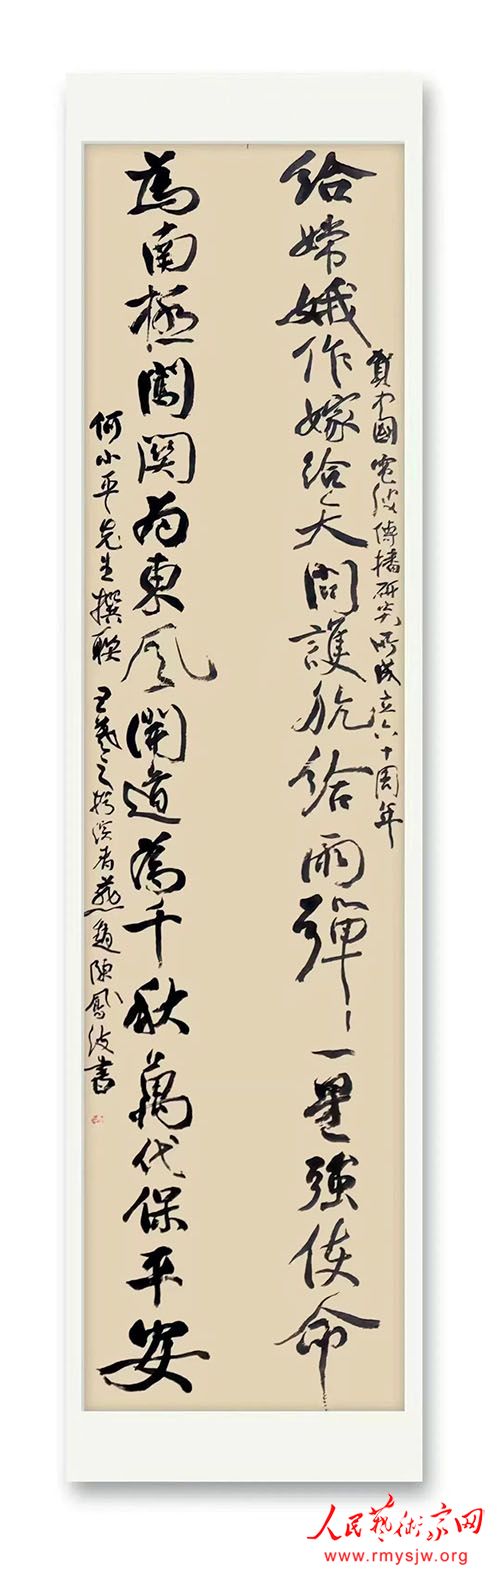 賀中國電波傳播研究所成立六十周年
給嫦娥作嫁給天問護航給兩彈一星強使命
為南極闖關為東風開道為千秋萬代保平安
何小平先生撰聯 王羲之扮演者燕趙陳鳳波書
人民藝術家网
www.rmysjw.org